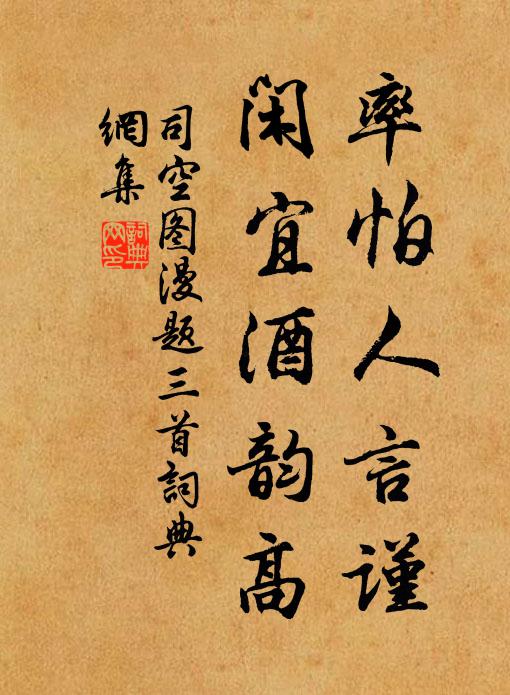 率怕人言谨
闲宜酒韵高
司空图漫题三首詞典
網集
詞典
网印